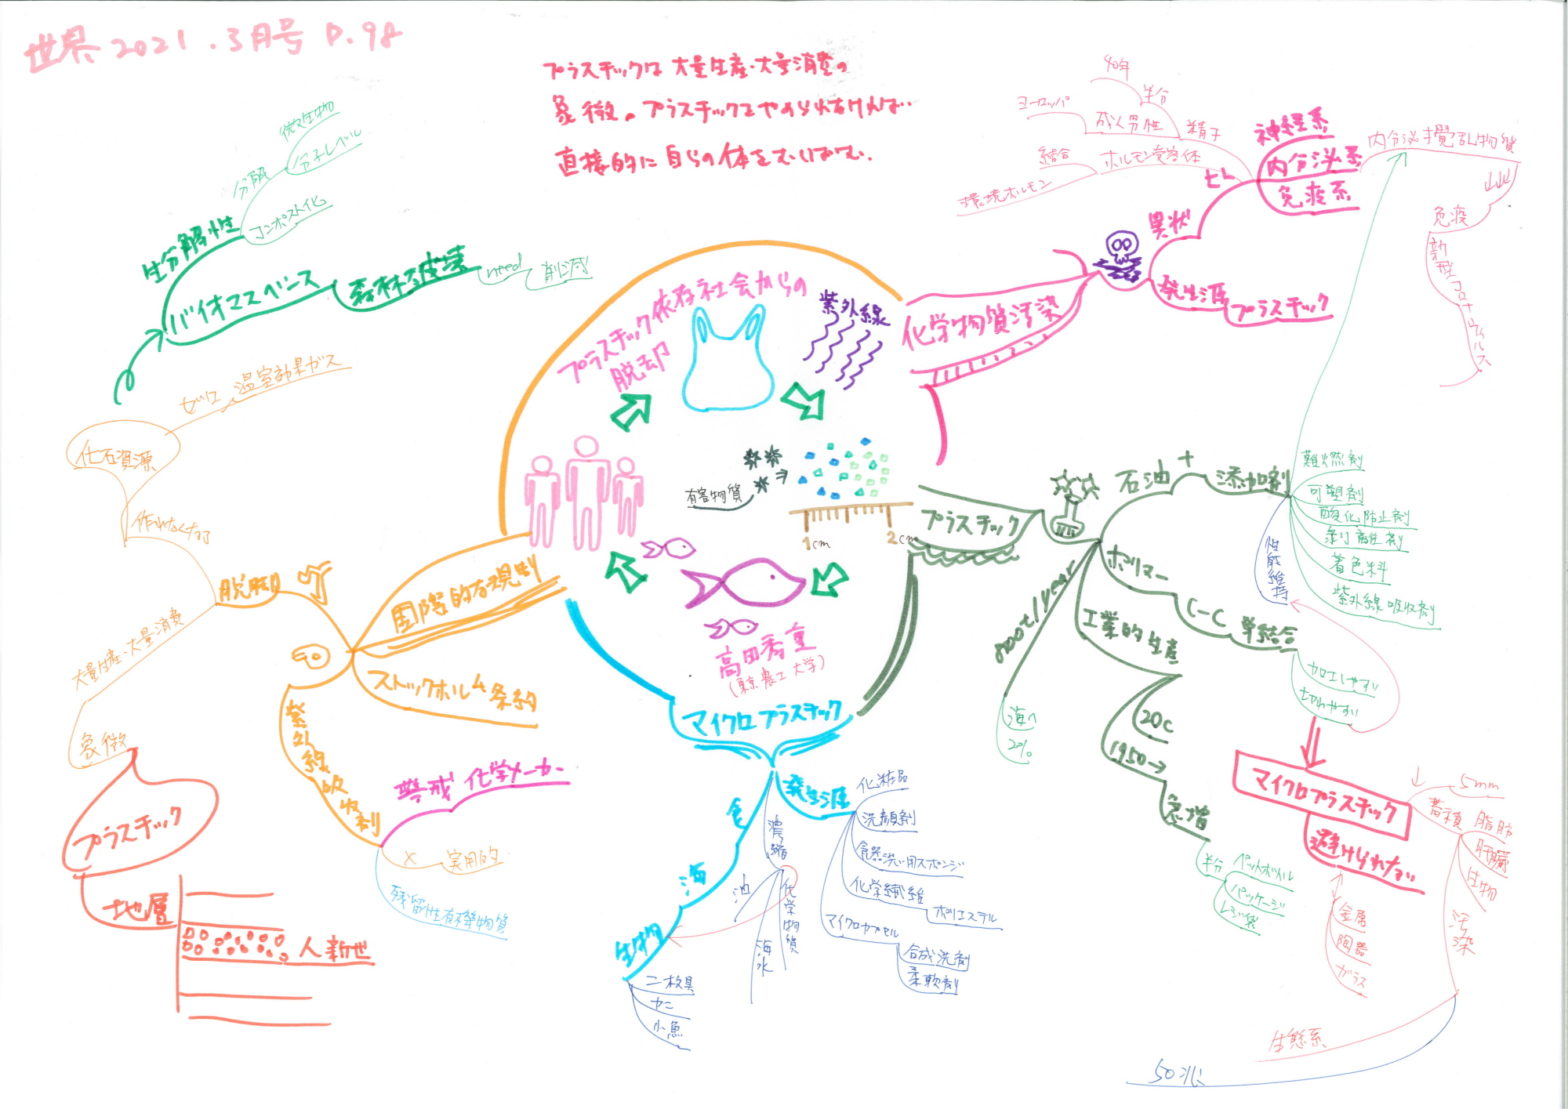 世界 2021.3月号 P.98
プラスチックは 大量生産・大量消費の
象徴。プラスチックをやめられなければ..
直接的に 自らの体をむしばむ.
プラスチック依存社会からの
脱却
紫外線
有害物質
1cm
2cm
高田秀重
(東京農工大学)
化学物質汚染
異状
ヒト
神経系
内分泌系
免疫系
精子
成人男性
半分
40年
ヨーロッパ
ホルモン受容体
結合
環境ホルモン
内分泌攪乱物質
免疫
新型コロナウィルス
発生源
プラスチック
プラスチック
石油
+
添加剤
難燃剤
可塑剤
酸化防止剤
剥離剤
着色料
紫外線吸収剤
性能維持
ポリマー
C-C 単結合
加工しやすい
切れやすい
マイクロプラスチック
避けられない
金属
陶器
ガラス
5mm
蓄積
脂肪
肝臓
生物
汚染
生態系
50兆
工業的生産
20C
1950→
急増
半分
ペットボトル
パッケージ
レジ袋
海へ
2%
マイクロプラスチック
発生源
化粧品
洗顔剤
食器洗い用スポンジ
化学繊維
ポリエステル
マイクロカプセル
合成洗剤
柔軟剤
濃縮
化学物質
油
海水
食
海
生物
二枚貝
カニ
小魚
国際的な規制
ストックホルム条約
紫外線吸収剤
警戒 化学メーカー
×
実用的
残留性有機物質
脱却
作れなくなる
化石資源
ゼロ
温室効果ガス
大量生産・大量消費
象徴
プラスチック
地層
人新世
バイオマスベース
生分解性
分解
分子レベル
微生物
コンポスト化
森林破壊
need
削減